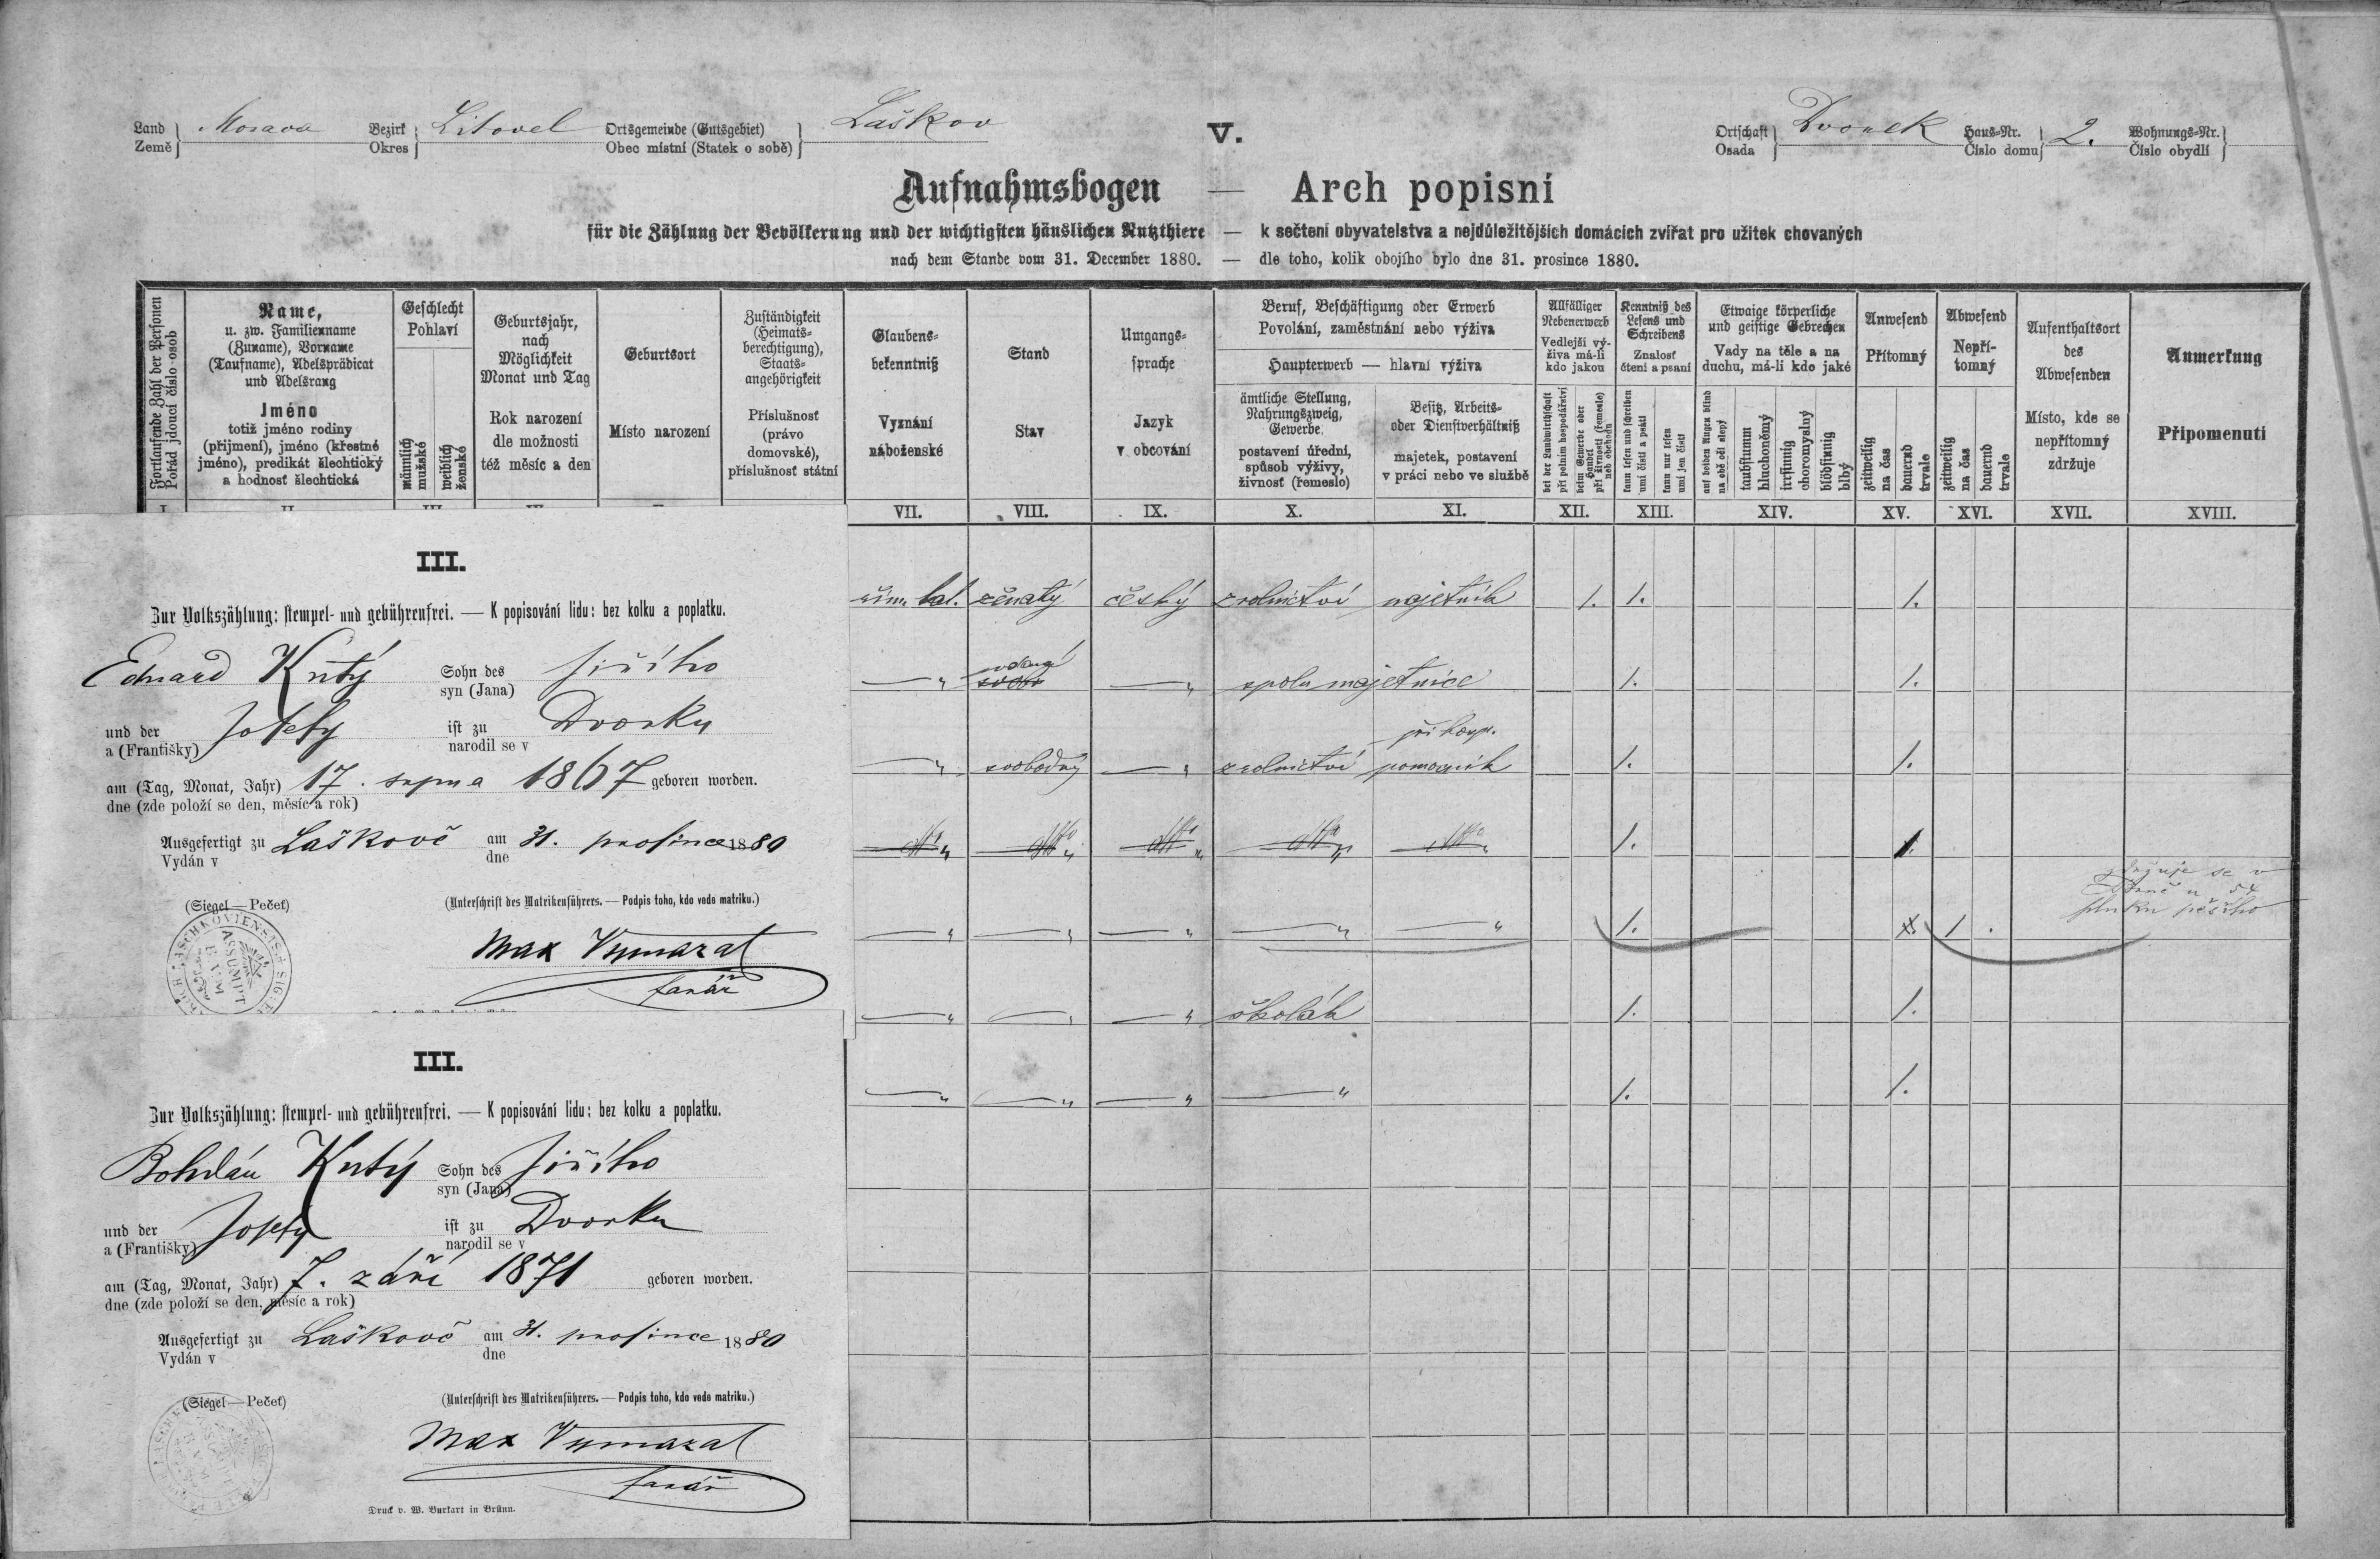 Land Země } Morava Bezirk Okres } Litovel Ortsgemeinde (Gutsgebiet) Obec místní (Statek o sobě) } Laškov
V.
Ortschaft Osada } Dvorek Haus-Nr. Číslo domu } 2. Wohnungs-Nr. Číslo obydlí }
Aufnahmsbogen — Arch popisní
für die Zählung der Bevölkerung und der wichtigsten häuslichen Nutzthiere — k sečtení obyvatelstva a nejdůležitějších domácích zvířat pro užitek chovaných
nach dem Stande vom 31. December 1880. — dle toho, kolik obojího bylo dne 31. prosince 1880.
Fortlaufende Zahl der Personen
Pořád jdoucí číslo osob
Name,
u. zw. Familienname
(Zuname), Vorname
(Taufname), Adelsprädicat
und Adelsrang
Jméno
totiž jméno rodiny
(přijmení), jméno (křestné
jméno), predikát šlechtický
a hodnosť šlechtická
Geschlecht
Pohlaví
männlich
mužské
weiblich
ženské
Geburtsjahr,
nach
Möglichkeit
Monat und Tag
Rok narození
dle možnosti
též měsíc a den
Geburtsort
Místo narození
Zuständigkeit
(Heimats-
berechtigung),
Staats-
angehörigkeit
Příslušnosť
(právo
domovské),
příslušnosť státní
Glaubens-
bekenntniß
Vyznání
náboženské
Stand
Stav
Umgangs-
sprache
Jazyk
v obcování
Beruf, Beschäftigung oder Erwerb
Povolání, zaměstnání nebo výživa
Haupterwerb — hlavní výživa
ämtliche Stellung,
Nahrungszweig,
Gewerbe.
postavení úřední,
spůsob výživy,
živnosť (řemeslo)
Besitz, Arbeits-
oder Dienstverhältniß
majetek, postavení
v práci nebo ve službě
Allfälliger
Nebenerwerb
Vedlejší vý-
živa má-li
kdo jakou
bei der Landwirthschaft
při polním hospodářství
beim Gewerbe oder
Handel
při živnosti (řemesle)
neb obchodu
Kenntniß des
Lesens und
Schreibens
Znalosť
čtení a psaní
kann lesen und schreiben
umí čísti a psáti
kann nur lesen
umí jen čísti
Etwaige körperliche
und geistige Gebrechen
Vady na těle a na
duchu, má-li kdo jaké
auf beiden Augen blind
na obě oči slepý
taubstumm
hluchoněmý
irrsinnig
choromyslný
blödsinnig
blbý
Anwesend
Přítomný
zeitweilig
na čas
dauernd
trvale
Abwesend
Nepří-
tomný
zeitweilig
na čas
dauernd
trvale
Aufenthaltsort
des
Abwesenden
Místo, kde se
nepřítomný
zdržuje
Anmerkung
Připomenutí
VII. VIII. IX. X. XI. XII. XIII. XIV. XV. XVI. XVII. XVIII.
řím. kat. ženatý český rolnictví majetník 1. 1. 1.
—„ vdaná —„ spolumajetnice 1. 1.
při hosp.
—„ svobodný —„ rolnictví pomocník 1. 1.
„ „ „ „ „ 1. 1.
zdržuje se v
Brně u 54
pluku pěšího
—„ —„ —„ —„ —„ 1. 1. 1.
—„ —„ —„ školák 1. 1.
—„ —„ —„ —„ 1. 1.
III.
Zur Volkszählung: stempel- und gebührenfrei. — K popisování lidu: bez kolku a poplatku.
Eduard Kutý Sohn des syn (Jana) Jiřího
und der a (Františky) Josefy ist zu narodil se v Dvorku
am (Tag, Monat, Jahr) 17. srpna 1867 geboren worden.
dne (zde položí se den, měsíc a rok)
Ausgefertigt zu Vydán v Laškově am dne 31. prosince 1880
(Siegel—Pečeť) (Unterschrift des Matrikenführers. — Podpis toho, kdo vede matriku.)
Max Vymazal
farář
III.
Zur Volkszählung: stempel- und gebührenfrei. — K popisování lidu: bez kolku a poplatku.
Bohdán Kutý Sohn des syn (Jana) Jiřího
und der a (Františky) Josefy ist zu narodil se v Dvorku
am (Tag, Monat, Jahr) 7. září 1871 geboren worden.
dne (zde položí se den, měsíc a rok)
Ausgefertigt zu Vydán v Laškově am dne 31. prosince 1880
(Siegel—Pečeť) (Unterschrift des Matrikenführers. — Podpis toho, kdo vede matriku.)
Max Vymazal
farář
Druck v. W. Burkart in Brünn.